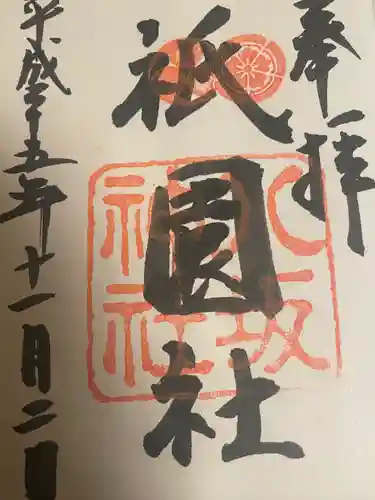 奉拝
祇園社
八坂神社
平成二十五年十一月二日